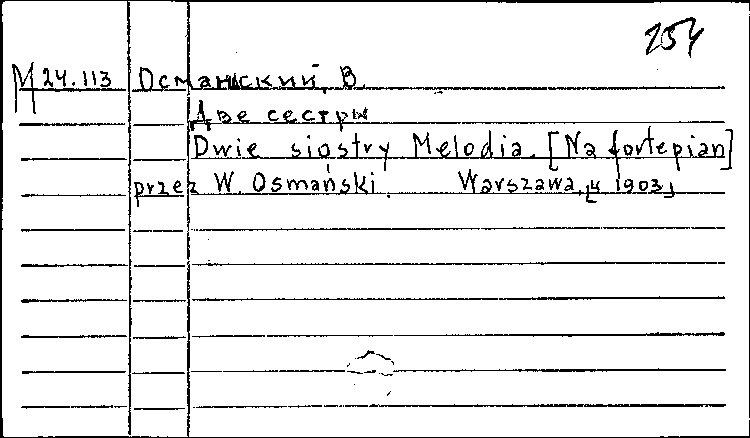 254
М 24.113 Османский, В.
Две сестры
Dwie siostry Melodia. [Na fortepian]
przez W. Osmański. Warszawa, [ц 1903]